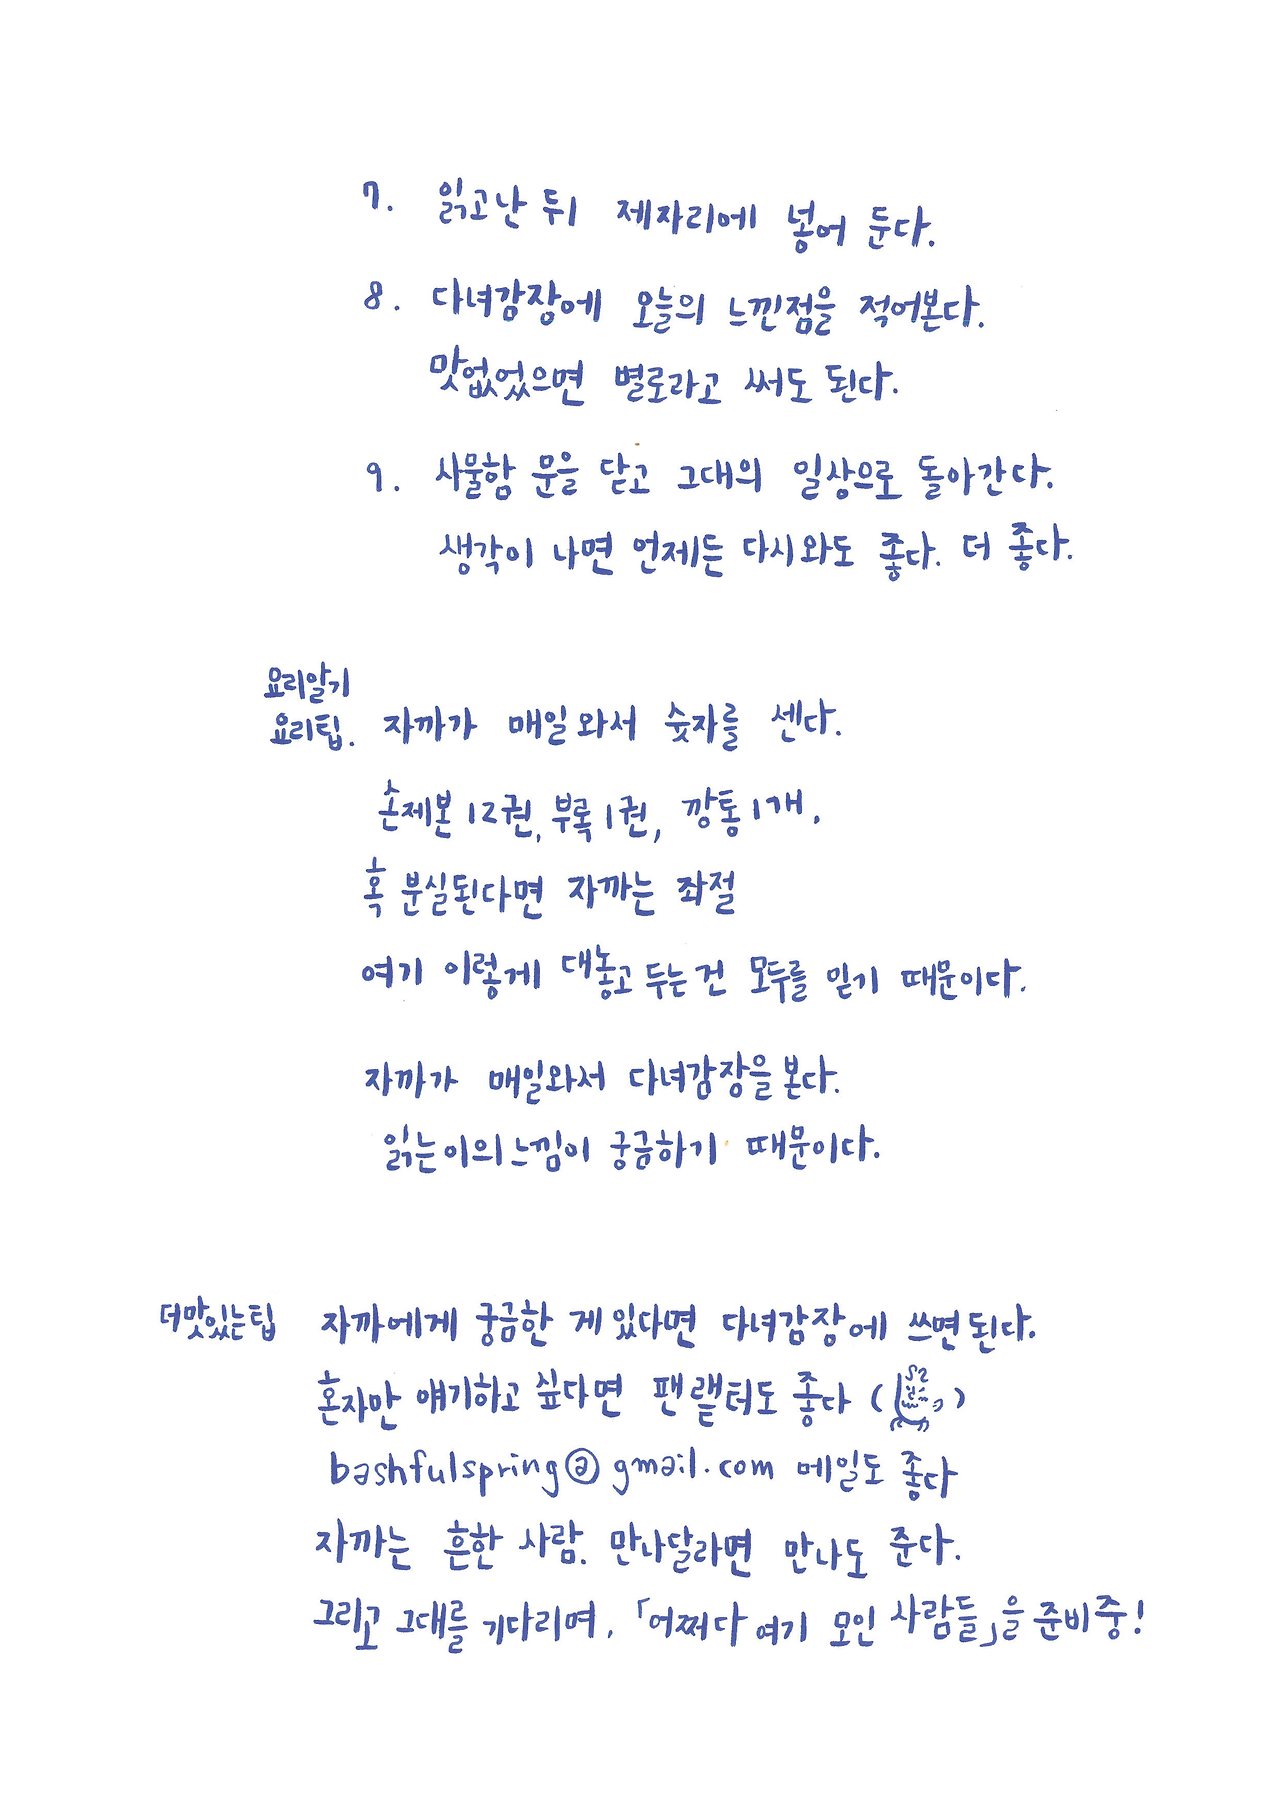 7. 읽고난 뒤 제자리에 넣어 둔다.
8. 다녀감장에 오늘의 느낀점을 적어본다.
맛없었으면 별로라고 써도 된다.
9. 사물함 문을 닫고 그대의 일상으로 돌아간다.
생각이 나면 언제든 다시와도 좋다. 더 좋다.
요리알기
요리팁. 자까가 매일와서 숫자를 센다.
손제본 12권, 부록 1권, 깡통 1개.
혹 분실된다면 자까는 좌절
여기 이렇게 대놓고 두는건 모두를 믿기 때문이다.
자까가 매일와서 다녀감장을 본다.
읽는이의 느낌이 궁금하기 때문이다.
더맛있는팁 자까에게 궁금한 게 있다면 다녀감장에 쓰면 된다.
혼자만 얘기하고 싶다면 팬렡터도 좋다 ( )
bashfulspring@gmail.com 메일도 좋다
자까는 흔한 사람. 만나달라면 만나도 준다.
그리고 그대를 기다리며, 「어쩌다 여기 모인 사람들」을 준비중!